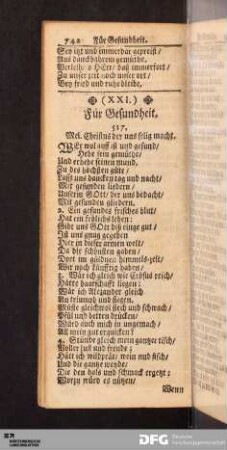 742 Für Gesundheit.
Sey itzt und immerdar gepreist/
Aus danckbahrem gemüthe.
Verleih/ o HErr/ daß immerfort/
Zu unser zeit auch unser ort/
Bey fried und ruhe bleibe.
(XXI.)
Für Gesundheit.
517.
Mel. Christus der uns selig macht.
WEr wol auff ist und gesund/
Hebe sein gemüthe/
Und erhebe seinen mund,
Zu des höchsten güte/
Laßt uns dancken tag und nacht/
Mit gesunden liedern/
Unserm GOtt/ der uns bedacht/
Mit gesunden gliedern.
2. Ein gesundes frisches blut/
Hat ein fröliches leben:
Giebt uns GOtt diß einge gut/
Ist uns gnug gegeben
Hier in dieser armen welt/
Da die schönsten gaben/
Dort im güldnen himmels-zelt/
Wir noch künfftig haben/
3. Wär ich gleich wie Crösus reich/
Hätte baarschafft liegen:
Wär ich Alexander gleich
An triumph und siegen.
Müste gleichwol siech und schwach/
Pfül und betten drücken/
Würd auch mich in ungemach/
All mein gut erquicken?
4. Stünde gleich mein gantzer tisch/
Voller lust und freude:
Hätt ich wildprät/ wein und fisch/
Und die gantze weyde/
Die den hals und schmack ergetzt:
Worzu würd es nützen/
Wenn
DFG Deutsche
Forschungsgemeinschaft